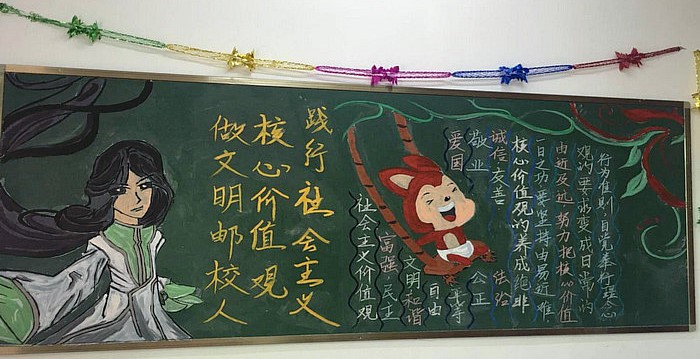 践行社会主义
核心价值观
做文明邮校人
社会主义价值观
富强 民主
文明和谐
自由
平等
公正
法治
爱国
敬业
诚信友善
核心价值观的养成绝非
一日之功要坚持由易近难
由近及远 努力把核心价值
观的要求变成日常的
行为准则,自觉奉行